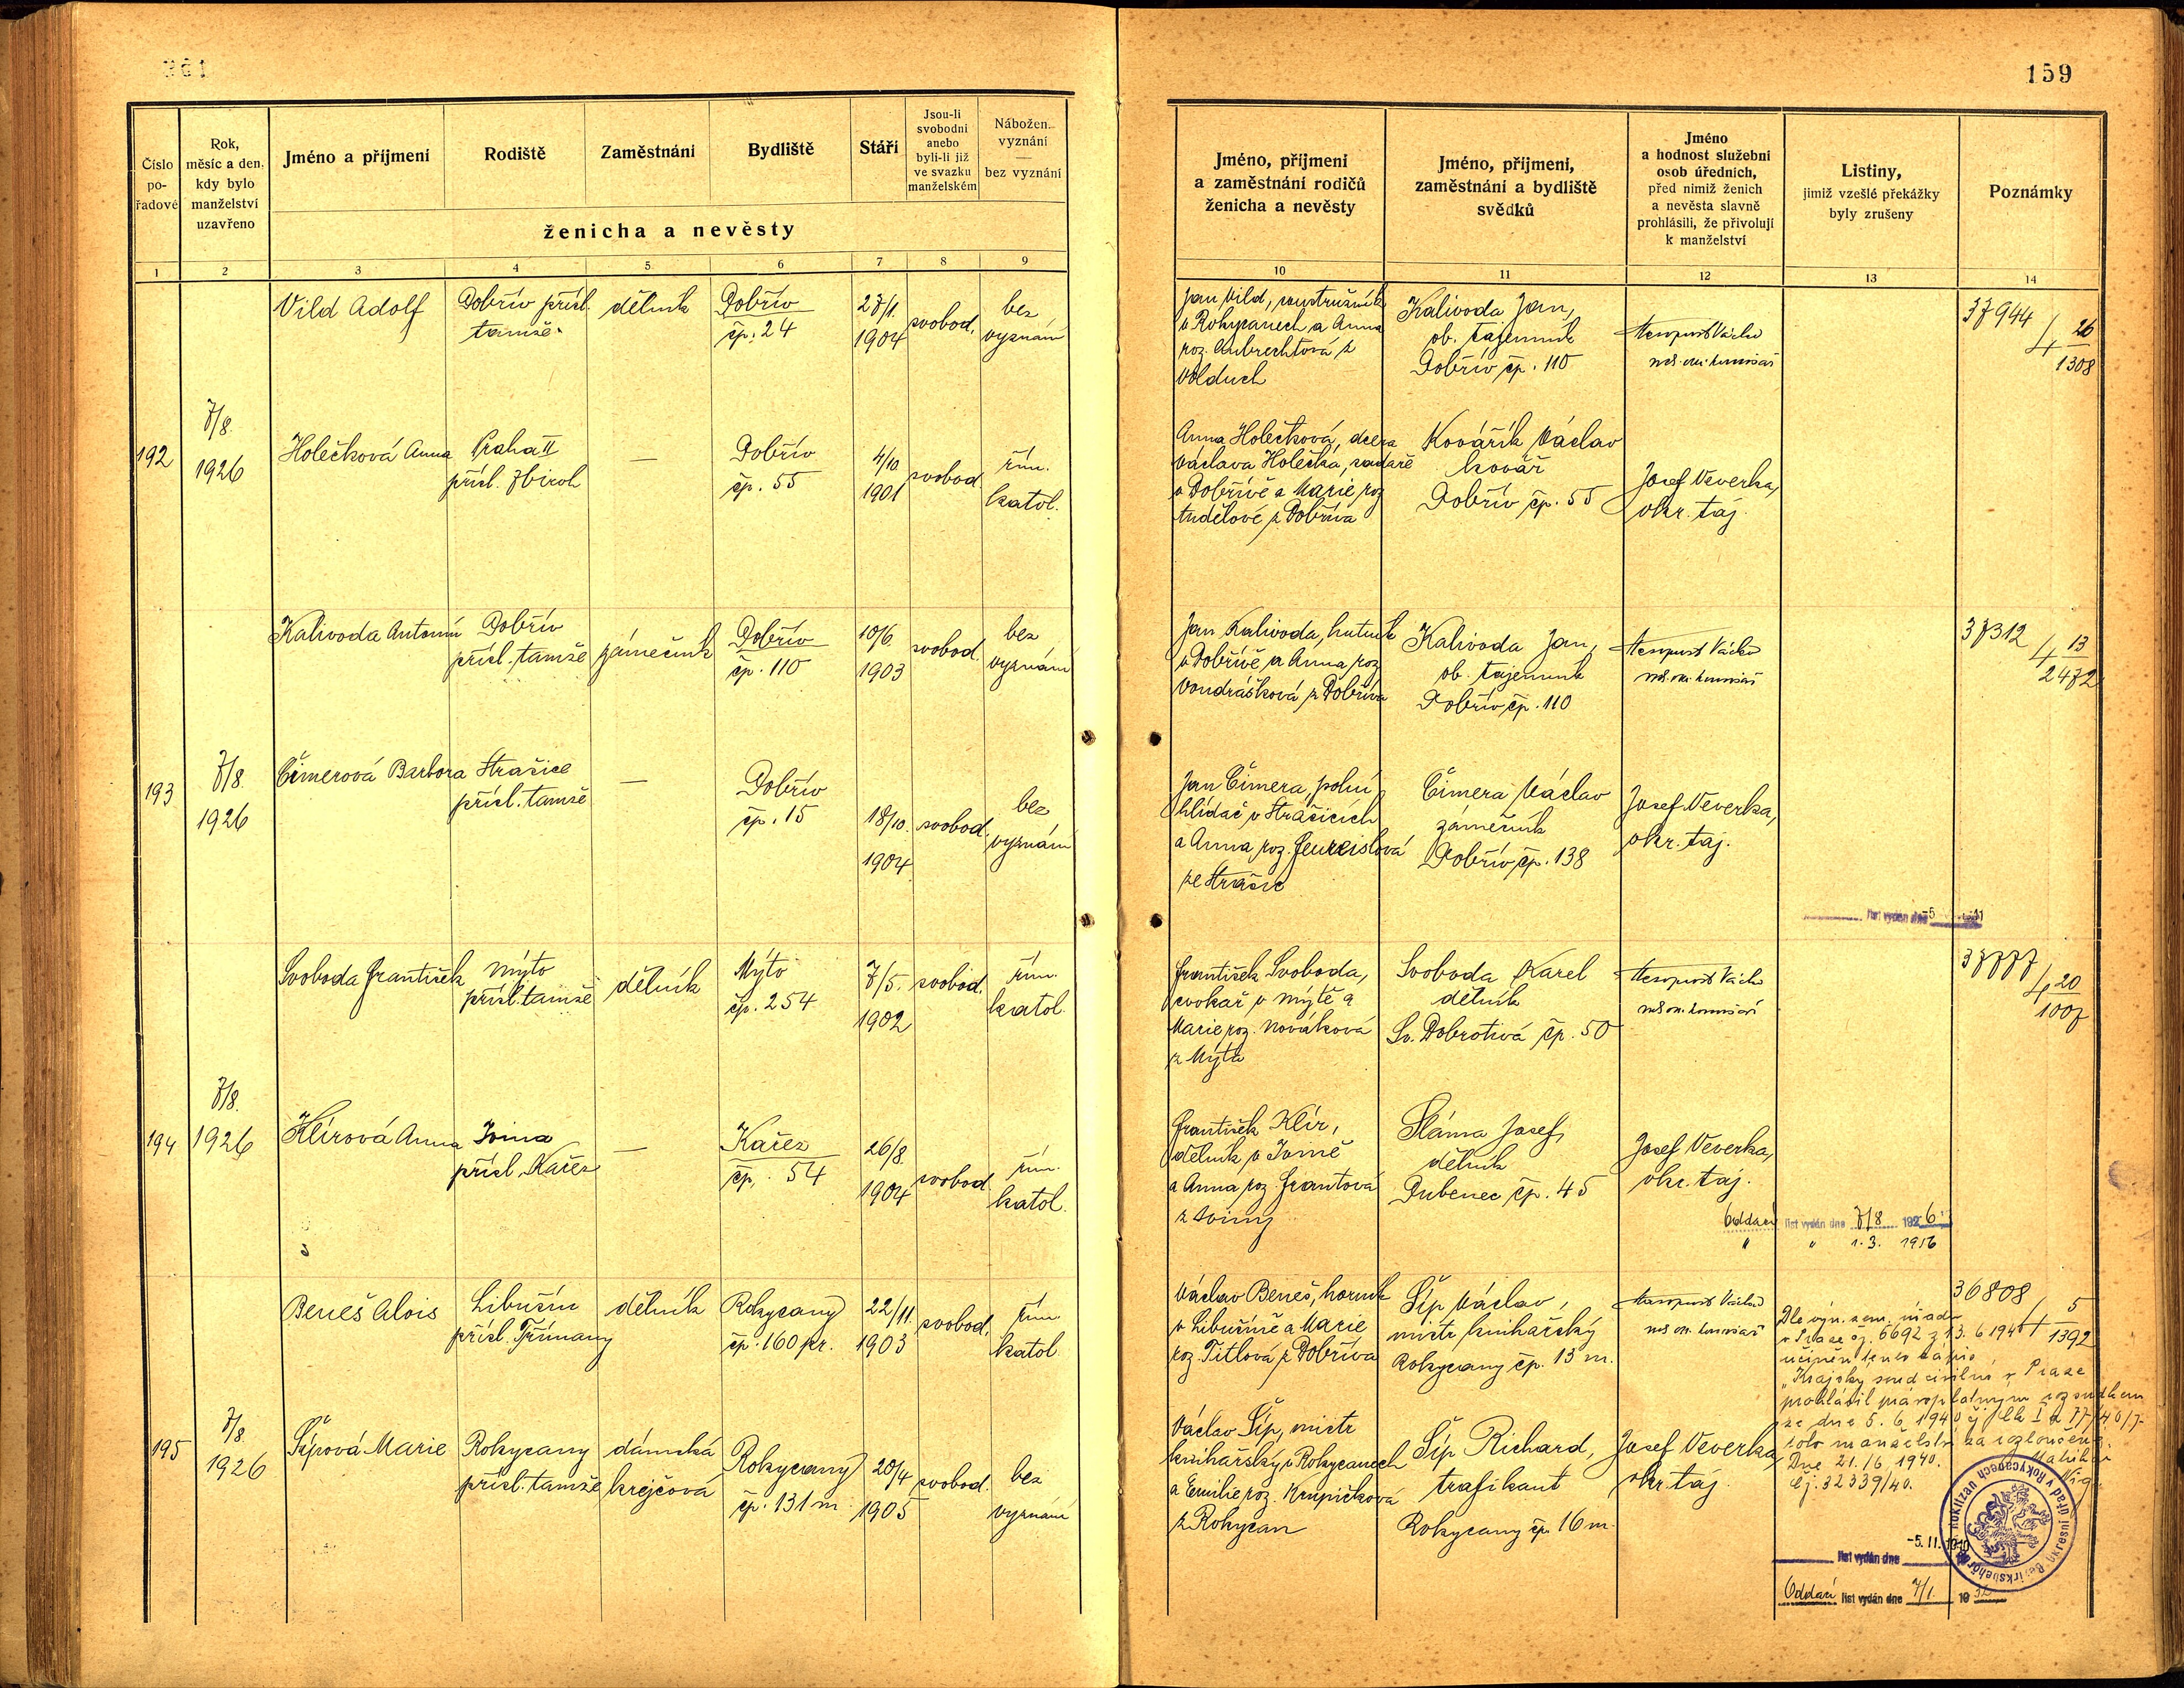 159
Číslo pořadové
Rok, měsíc a den, kdy bylo manželství uzavřeno
Jméno a příjmení
Rodiště
Zaměstnání
Bydliště
Stáří
Jsou-li svobodní anebo byli-li již ve svazku manželském
Nábožen. vyznání — bez vyznání
ženicha a nevěsty
Jméno, příjmení a zaměstnání rodičů ženicha a nevěsty
Jméno, příjmení, zaměstnání a bydliště svědků
Jméno a hodnost služební osob úředních, před nimiž ženich a nevěsta slavně prohlásili, že přivolují k manželství
Listiny, jimiž vzešlé překážky byly zrušeny
Poznámky
1 2 3 4 5 6 7 8 9 10 11 12 13 14
192
7/8.
1926
Vild Adolf
Dobřív přísl.
tamže
dělník
Dobřív
čp. 24
27/1.
1904
svobod.
bez
vyznání
Jan Vild, soustružník
v Rokycanech a Anna
roz.
Volduch
Kalivoda Jan,
ob. tajemník
Dobřív čp. 110
37944
4 26
1308
Holečková Anna
Praha II
přísl. Zbiroh
—
Dobřív
čp. 55
4/10
1901
svobod.
řím.
katol.
Anna Holečková, dcera
Václava Holečka,
v Dobřívě a Marie roz.
Andělové z Dobříva
Kovářík Václav
kovář
Dobřív čp. 55
Josef Veverka,
okr. taj.
193
7/8.
1926
Kalivoda Antonín
Dobřív
přísl. tamže
zámečník
Dobřív
čp. 110
10/6.
1903
svobod.
bez
vyznání
Jan Kalivoda, hutník
v Dobřívě a Anna roz.
Vondrášková z Dobříva
Kalivoda Jan,
ob. tajemník
Dobřív čp. 110
37312
4 13
2472
Čimerová Barbora
Strašice
přísl. tamže
—
Dobřív
čp. 15
18/10.
1904
svobod.
bez
vyznání
Jan Čimera, polní
hlídač v Strašicích
a Anna roz.
ze Strašic
Čimera Václav
zámečník
Dobřív čp. 138
Josef Veverka,
okr. taj.
list vydán dne
194
7/8.
1926
Svoboda František
Mýto
přísl. tamže
dělník
Mýto
čp. 254
7/5.
1902
svobod.
řím.
katol.
František Svoboda,
cvokař v Mýtě a
Marie roz. Nováková
z Mýta
Svoboda Karel
dělník
Sv. Dobrotivá čp. 50
37777
4 20
1007
Klírová Anna
Jvina
přísl. Kařez
—
Kařez
čp. 54
26/8.
1904
svobod.
řím.
katol.
František Klír,
dělník v Jvině
a Anna roz. Frantová
z Jviny
Sláma Josef,
dělník
Dubenec čp. 45
Josef Veverka,
okr. taj.
Oddací list vydán dne 7/8 1926
" " 1. 3. 1956
195
7/8.
1926
Beneš Alois
Libušín
přísl. Třímany
dělník
Rokycany
čp. 160 pr.
22/11.
1903
svobod.
řím.
katol.
Václav Beneš, horník
v Libušíně a Marie
roz. Titlová z Dobříva
Šíp Václav,
mistr knihařský
Rokycany čp. 13 m.
36808
4 5
1392
Dle výn. zem. úřadu
v Praze čj. 6692 z 13. 6 1940
učiněn tento zápis
„Krajský soud civilní v Praze
prohlásil právoplatným rozsudkem
ze dne 5. 6. 1940
toto manželství za rozloučené.
Dne 21./6. 1940.
Čj. 32339/40.
Šípová Marie
Rokycany
přísl. tamže
dámská
krejčová
Rokycany
čp. 131 m.
20/4
1905
svobod.
bez
vyznání
Václav Šíp, mistr
knihařský v Rokycanech
a Emilie roz. Krupičková
z Rokycan
Šíp Richard,
trafikant
Rokycany čp. 16 m.
Josef Veverka,
okr. taj.
Okresní úřad v Rokycanech
list vydán dne -5. II. 1940
Oddací list vydán dne 7/1. 19